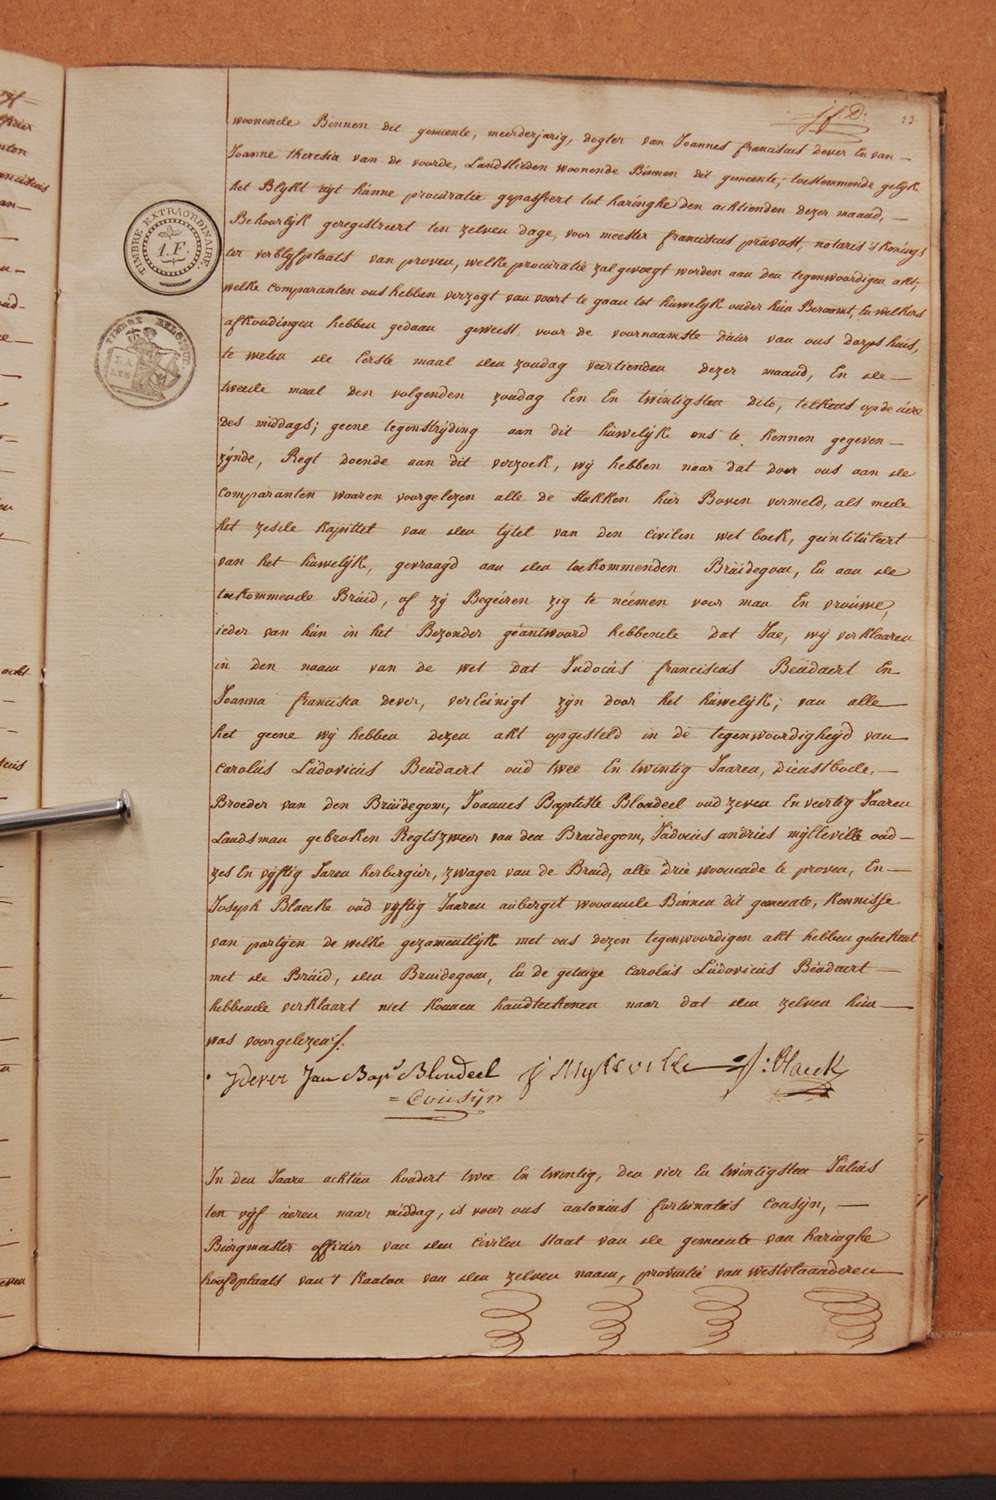 23
TIMBRE EXTRAORDINAIRE
1.F.
woonende Binnen dit gemeente, meerderjarig, dogter van Joannes franciscus dever En van —
Joanne theresia van de voorde, Landslieden woonende Binnen dit gemeente, toestemmende gelijk
het Blijkt uijt hunne procuratie gepasseert tot haringhe den achtienden dezer maand, —
Behoorlijk geregistreert ten zelven dage, voor meester franciscus pruvost, notaris 's konings
ter verblyfplaats van proven, welke procuratie zal gevoegt worden aan den tegenwoordigen akt,
welke comparanten ons hebben verzogt van voort te gaan tot huwelijk onder hun Beraamt, En welkers
afkondingen hebben gedaan geweest voor de voornaamste duur van ons dorps huis,
te weten de Eerste maal den zondag veertienden dezer maand, En de —
tweede maal den volgenden zondag Een En twintigsten dito, telkens op de uere
des middags; geene tegenstrijding aan dit huwelijk ons te kennen gegeven —
zynde, Regt doende aan dit verzoek, wij hebben naer dat door ons aan de
comparanten waaren voorgelezen alle de stukken hier Boven vermeld, als mede
het zesde kapittel van den tytel van den civilen wet boek, geintituleert
van het huwelijk, gevraagd aan den toekommenden Bruidegom, En aan de
toekommende Bruid, of zy Begeiren zig te néemen voor man En vrouwe,
ieder van hun in het Bezonder géantwoord hebbende dat Jae, wy verklaaren
in den naam van de wet dat Judocus franciscus Beudaert En
Joanna francisca dever, veréinigt zyn door het huwelijk; van alle
het geene wij hebben dezen akt opgesteld in de tegenwoordigheijd van
Carolus Ludovicus Beudaert oud twee En twintig Jaaren, dienstbode, —
Broeder van den Bruidegom, Joannes Baptiste Blondeel oud zeven En veertig Jaaren
Landsman gebroken Regtszweer van den Bruidegom, Judocus andries mylleville oud —
zes En vyftig Jaren herbergier, zwager van de Bruid, alle drie woonende te proven, En —
Joseph Blaecke oud vyftig Jaaren aubergist woonende Binnen dit gemeente, kennisse
van partyen de welke gezamentlijk met ons dezen tegenwoordigen akt hebben geteekent
met de Bruid, den Bruidegom, En de getuige Carolus Ludovicus Beudaert —
hebbende verklaart niet konnen handteekenen naar dat den zelven hun —
was voorgelezen /.
J dever Jan Bap.t Blondeel
= Cousijn
In den Jaare achtien hondert twee En twintig, den vier En twintigsten Julius
ten vyf ueren naar middag, is voor ons antonius fortunatus Cousijn, —
Burgmeester officier van den Civilen staat van de gemeente van haringhe
hoofdplaats van 't kanton van den zelven naam, provintie van westvlaanderen —